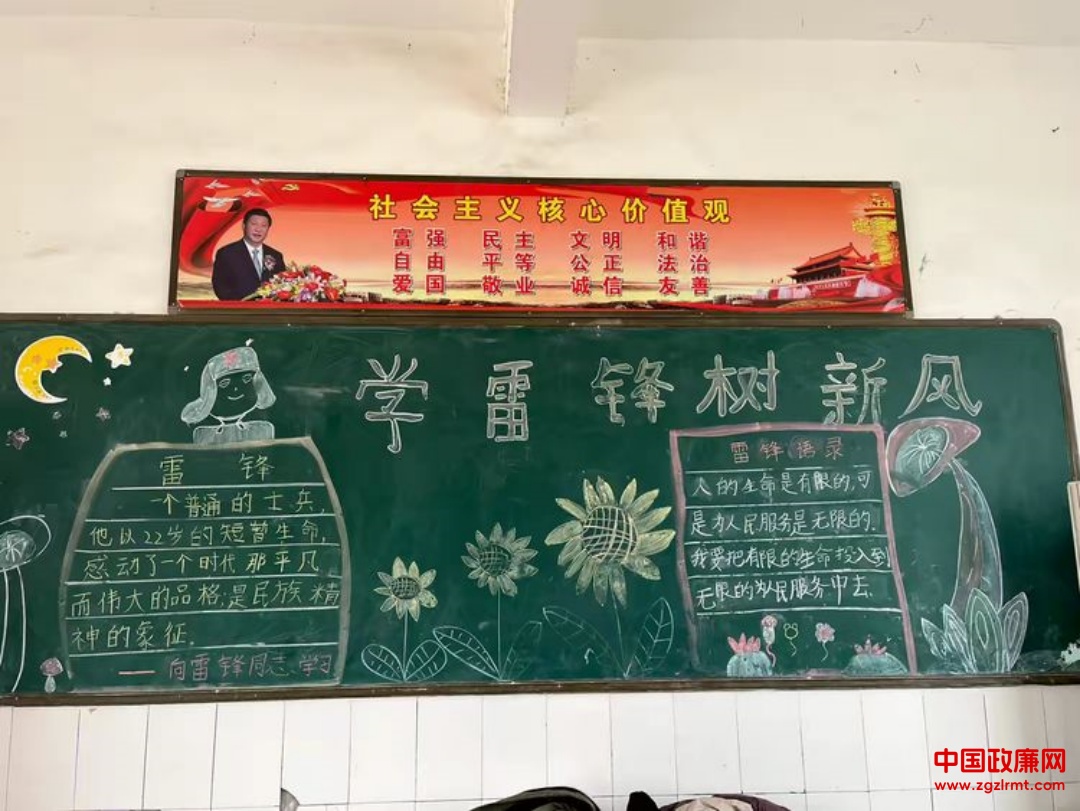 社会主义核心价值观
富强 民主 文明 和谐
自由 平等 公正 法治
爱国 敬业 诚信 友善
学雷锋树新风
雷锋
一个普通的士兵,
他以22岁的短暂生命,
感动了一个时代那平凡
而伟大的品格,是民族精
神的象征.
——向雷锋同志学习
雷锋语录
人的生命是有限的,可
是为人民服务是无限的.
我要把有限的生命投入到
无限的为人民服务中去.
中国政廉网
www.zgzlrmt.com